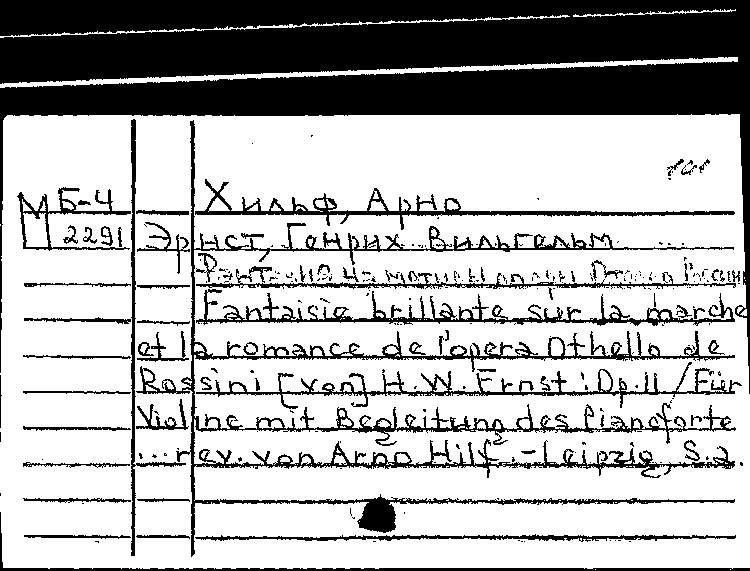 Б-4 Хильф, Арно
М 2291 Эрнст, Генрих Вильгельм
Фантазия на мотивы оперы Отелло Россини
Fantaisie brillante sur la marche
et la romance de l'opera Othello de
Rossini [von] H.W. Ernst : Op. 11 / Für
Violine mit Begleitung des Pianoforte
...rev. von Arno Hilf. - Leipzig, S.a.